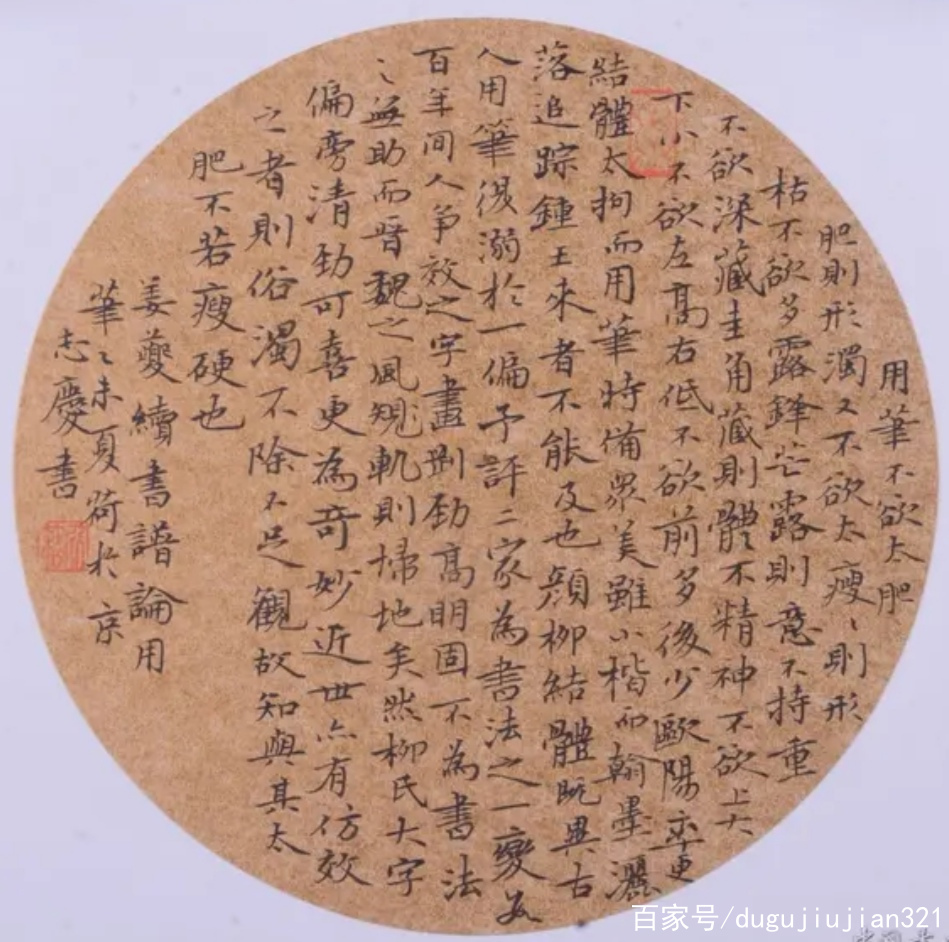 用筆不欲太肥
肥則形濁又不欲太瘦〻則形
枯不欲多露鋒芒露則意不持重
不欲深藏圭角藏則體不精神不欲上大
下小不欲左高右低不欲前多後少歐陽率更
結體太拘而用筆時備眾美雖小楷而翰墨灑
落追踪鍾王來者不能及也顏柳結體既異古
人用筆復溺於一偏予評二家為書法之一變数
百年間人爭效之字畫剛勁高明固不為書法
之無助而晋魏之風規軌則掃地矣然柳氏大字
偏旁清勁可喜更為奇妙近世亦有仿效
之者則俗濁不除不足觀故知與其太
肥不若瘦硬也
姜夔續書譜論用
筆〻未夏荷於京
志慶書
百家号/dugujiujian321